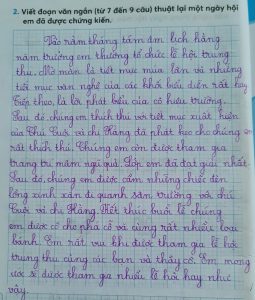 2. Viết đoạn văn ngắn (từ 7 đến 9 câu) thuật lại một ngày hội
em đã được chứng kiến.
Vào rằm tháng tám âm lịch hàng
năm trường em thường tổ chức lễ hội trung
thu. Mở màn là tiết mục múa lân và những
tiết mục văn nghệ của các khối biểu diễn rất hay.
Tiếp theo, là lời phát biểu của cô hiệu trưởng.
Sau đó, chúng em thích thú với tiết mục xuất hiện
của Chú Cuội và chị Hằng đã phát kẹo cho chúng em
rất thích thú. Chúng em còn được tham gia
trang trí mâm ngũ quả. Lớp em đã đạt giải nhất.
Sau đó, chúng em được cầm những chiếc đèn
lồng xinh xắn đi quanh sân trường với chú
Cuội và chị Hằng. Kết thúc buổi lễ chúng
em được cô chia phá cỗ và cùng rất nhiều loại
bánh. Em rất vui khi được tham gia lễ hội
trung thu cùng các bạn và thầy cô. Em mong
ước sẽ được tham gia nhiều lễ hội hay như
vậy.